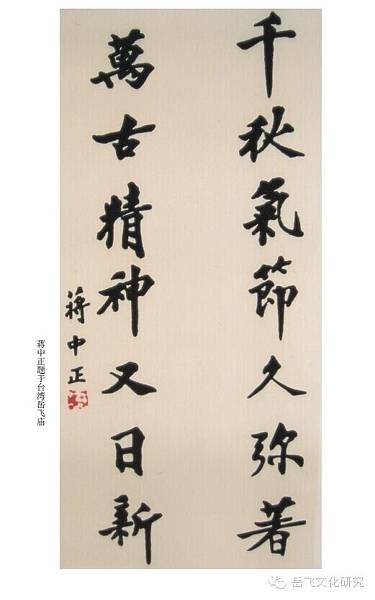 千秋氣節久弥著
萬古精神又日新
蔣中正
蒋中正题于台湾岳飞庙
岳飞文化研究